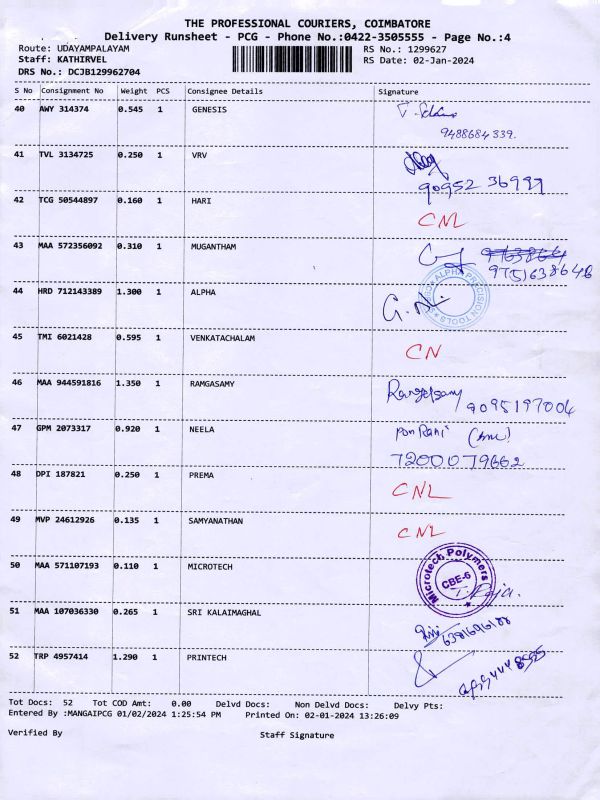 THE PROFESSIONAL COURIERS, COIMBATORE
Delivery Runsheet - PCG - Phone No.:0422-3505555 - Page No.:4
Route: UDAYAMPALAYAM RS No.: 1299627
Staff: KATHIRVEL RS Date: 02-Jan-2024
DRS No.: DCJB129962704
S No Consignment No Weight PCS Consignee Details Signature
40 AWY 314374 0.545 1 GENESIS
9488684339.
41 TVL 3134725 0.250 1 VRV
90952 36999
42 TCG 50544897 0.160 1 HARI CNL
43 MAA 572356092 0.310 1 MUGANTHAM
9751638646
44 HRD 712143389 1.300 1 ALPHA
ALPHA PRECISION TOOLS
45 TMI 6021428 0.595 1 VENKATACHALAM CN
46 MAA 944591816 1.350 1 RAMGASAMY
9095197004
47 GPM 2073317 0.920 1 NEELA Pon Rani
7200079662
48 DPI 187821 0.250 1 PREMA CNL
49 MVP 24612926 0.135 1 SAMYANATHAN CNL
50 MAA 571107193 0.110 1 MICROTECH
Microtech Polymers
CBE-6
T. Raja.
51 MAA 107036330 0.265 1 SRI KALAIMAGHAL
52 TRP 4957414 1.290 1 PRINTECH
Tot Docs: 52 Tot COD Amt: 0.00 Delvd Docs: Non Delvd Docs: Delvy Pts:
Entered By :MANGAIPCG 01/02/2024 1:25:54 PM Printed On: 02-01-2024 13:26:09
Verified By Staff Signature